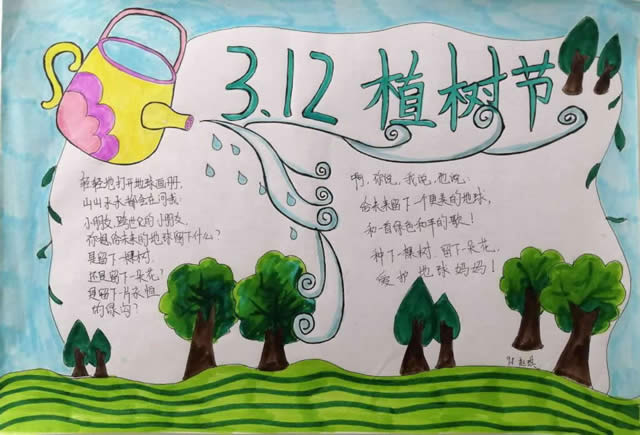 3.12 植树节
轻轻地打开地球画册,
山山水水都会在问我
小朋友,跨世纪的小朋友,
你想给未来的地球留下什么?
是留下一棵树.
还是留下一朵花?
是留下一片衣恒
的绿洲?
啊,你说,我说,他说:
会未来留下一个更美的地球,
和一首绿色和平的歌!
种下一棵树.留下一朵花,
爱护地球妈妈!